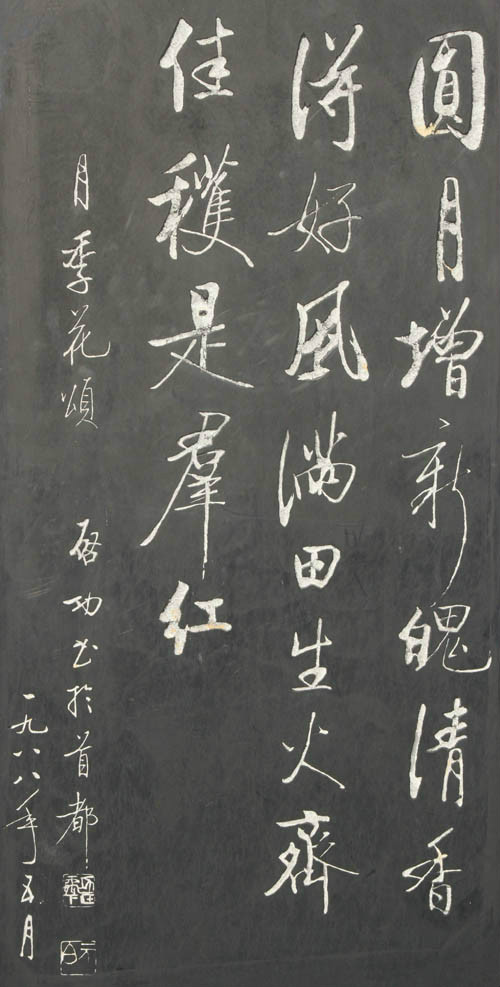 圓月增新魄清香
得好風滿田生火齊
佳穫是羣紅
月季花頌 啓功書於首都
一九八八年五月